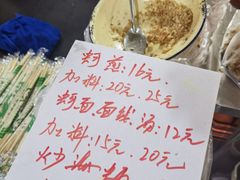 蚵煎:16元.
加料:20元.25元
蚵面.面线.汤:12元
加料:15元.20元
炒